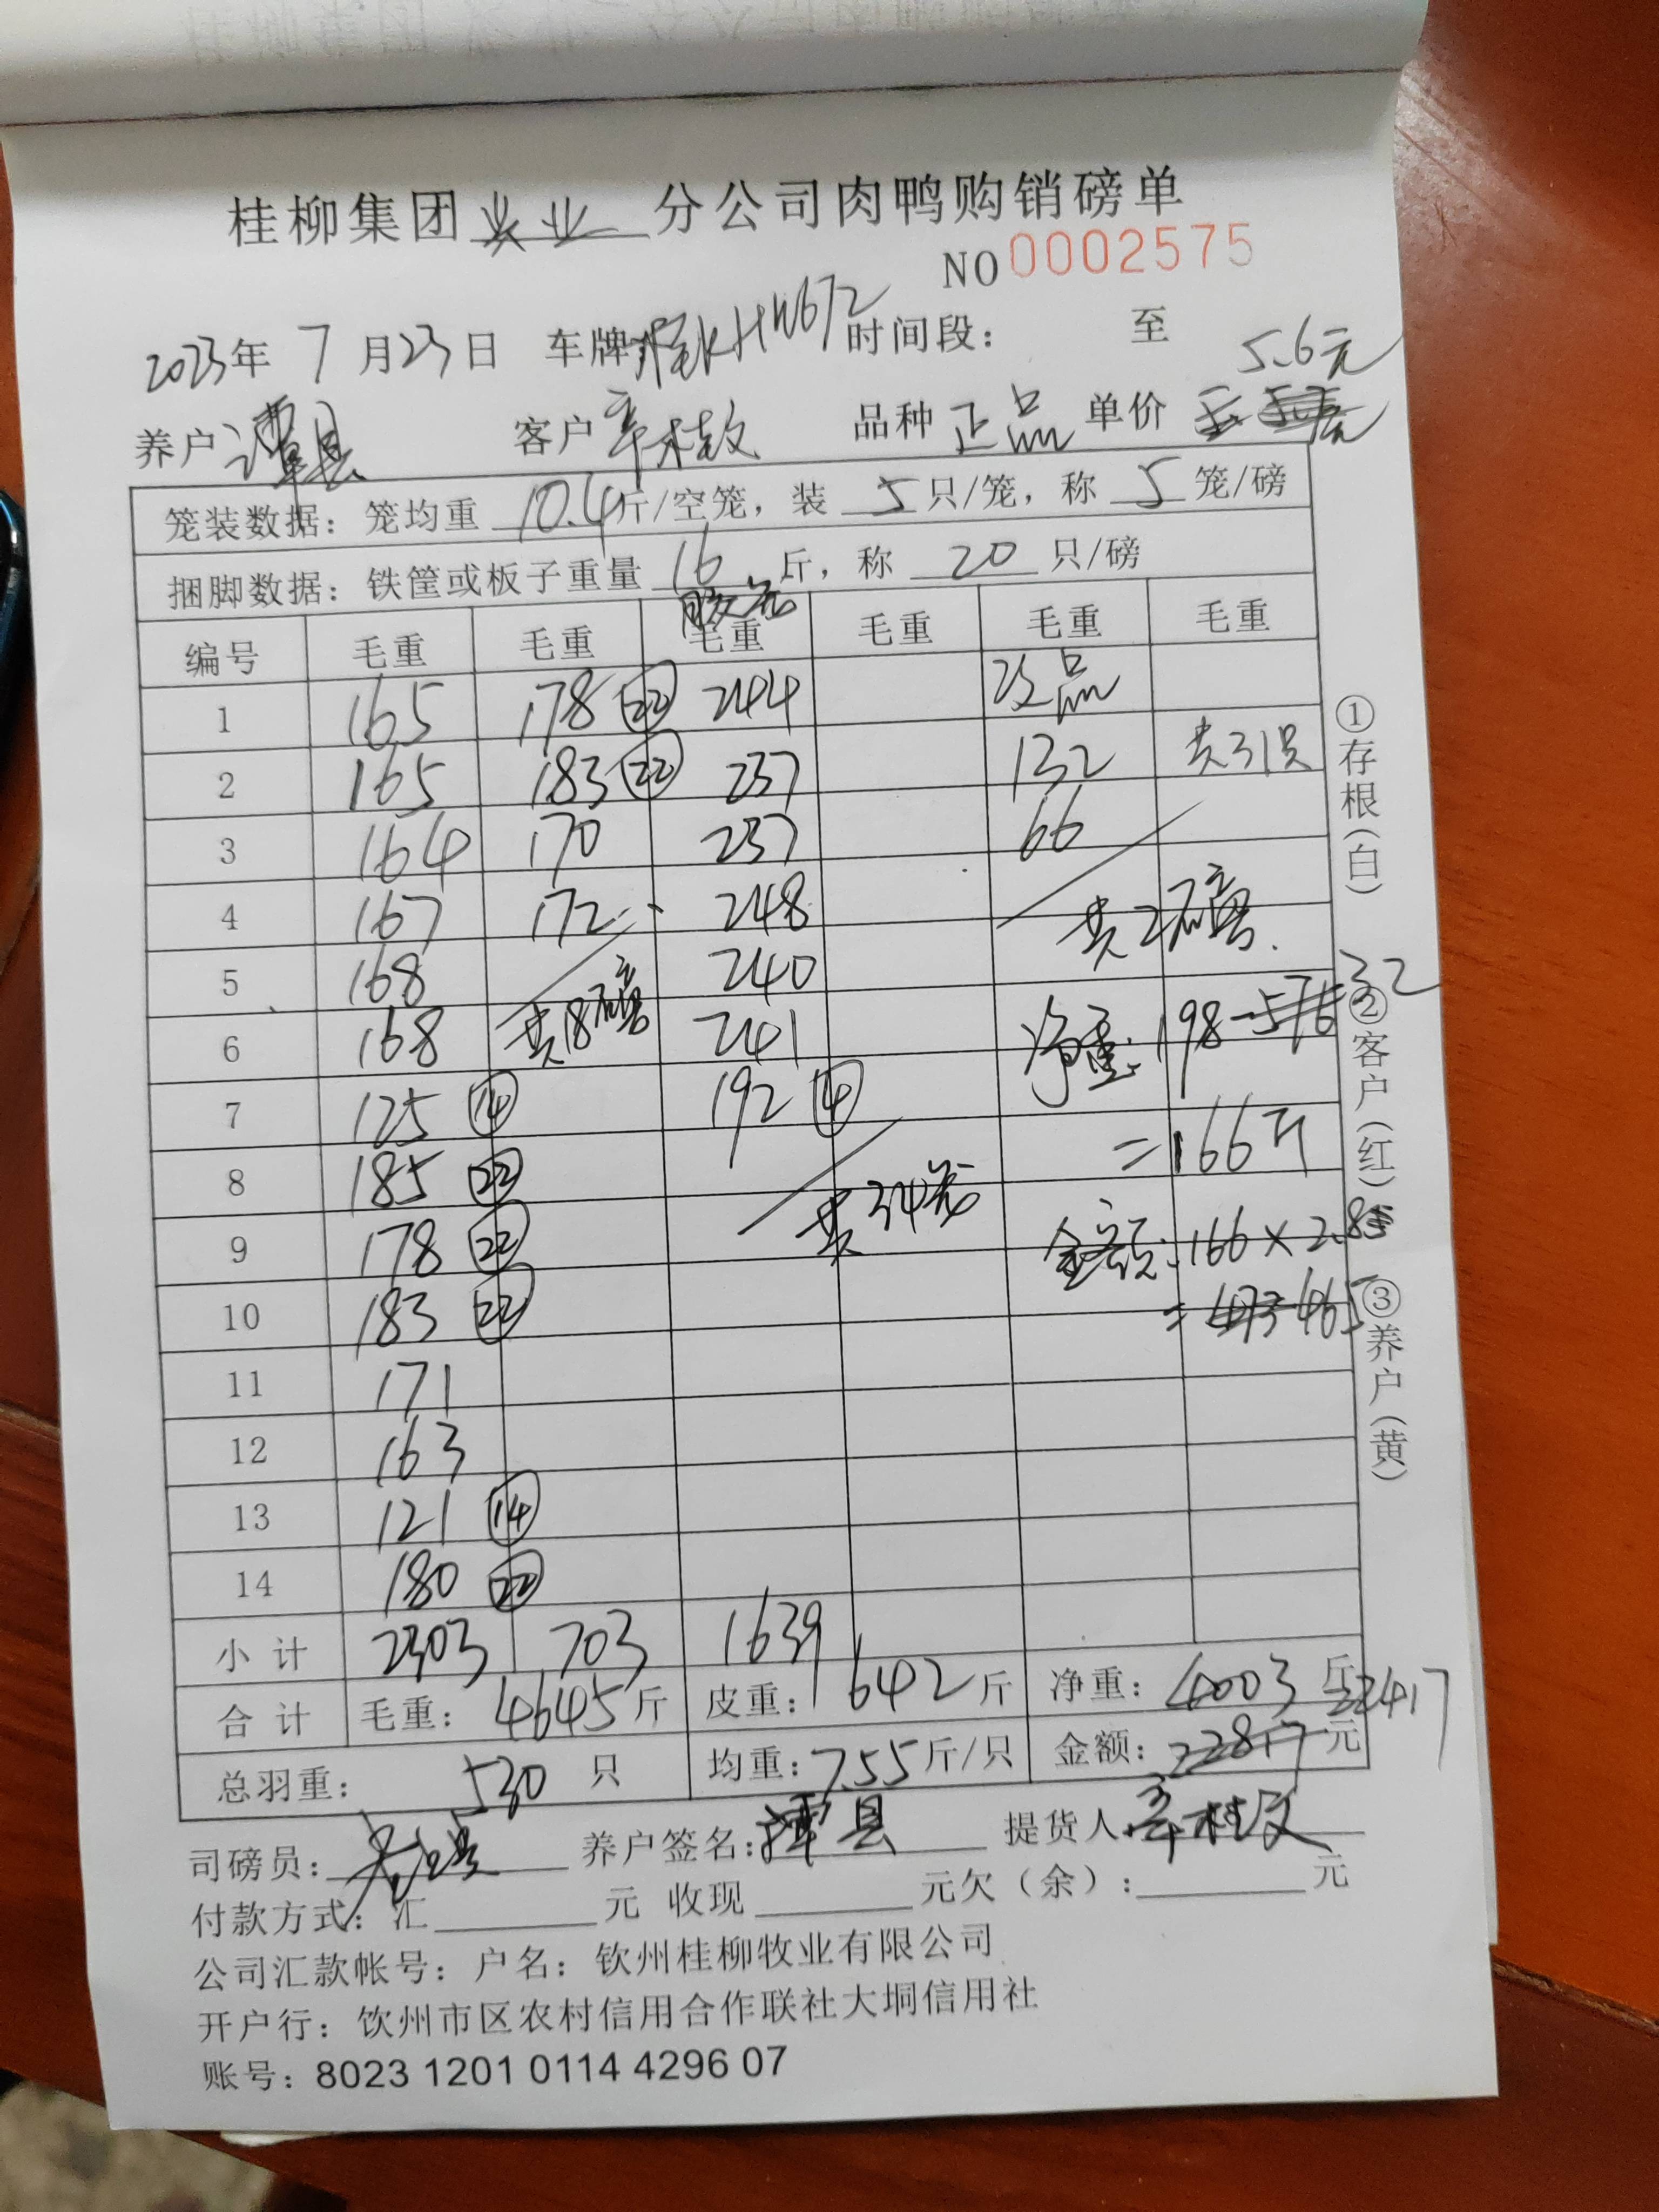 桂柳集团 牧业 分公司肉鸭购销磅单
NO 0002575
2023年 7 月 23 日 车牌 HW672 时间段： 至
5.6元
养户 谭县 客户 辛桂 品种 正品 单价
笼装数据：笼均重 10.4 斤/空笼，装 5 只/笼，称 5 笼/磅
捆脚数据：铁筐或板子重量 16 斤，称 20 只/磅
胶笼
编号 毛重 毛重 毛重 毛重 毛重 毛重
1 165 178 22 244 次品
2 165 183 22 237 132 共31只
3 164 170 237 66
4 167 172 248 共2磅
5 168 240
6 168 共18磅 241 净重：198-576 32
7 125 14 192 4 =166斤
8 185 22
9 178 22 共34笼 金额：166×2.8
10 183 22 =473 465
11 171
12 163
13 121 14
14 180 22
小计 2303 703 1639
合计 毛重：4645 斤 皮重：642 斤 净重：4003 斤
22417
总羽重： 530 只 均重：7.55 斤/只 金额：22817 元
司磅员： 养户签名：谭县 提货人：辛桂
付款方式：汇 元 收现 元欠（余）： 元
公司汇款帐号：户名：钦州桂柳牧业有限公司
开户行：饮州市区农村信用合作联社大垌信用社
账号：8023 1201 0114 4296 07
①存根（白）②客户（红）③养户（黄）